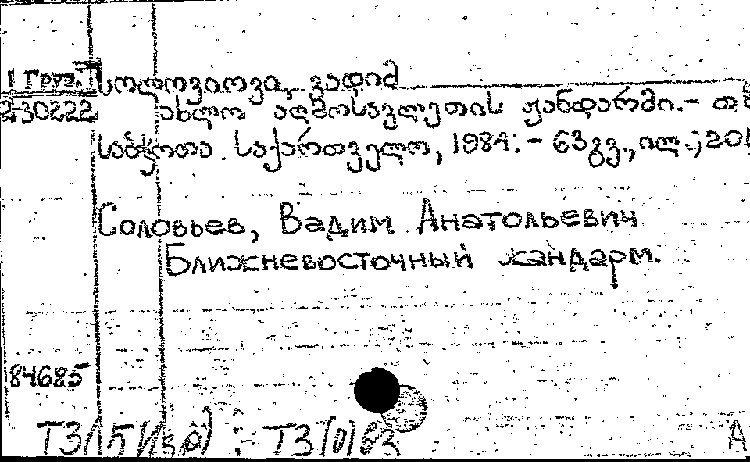 1 Груз. სოლოვიოვი, ვადიმ
230222 ახლო აღმოსავლეთის ჟანდარმი. - თბ
საბჭოთა საქართველო, 1984. - 63 გვ., ილ.; 20
Соловьев, Вадим Анатольевич
Ближневосточный жандарм.
84685
Т3(0)63
А